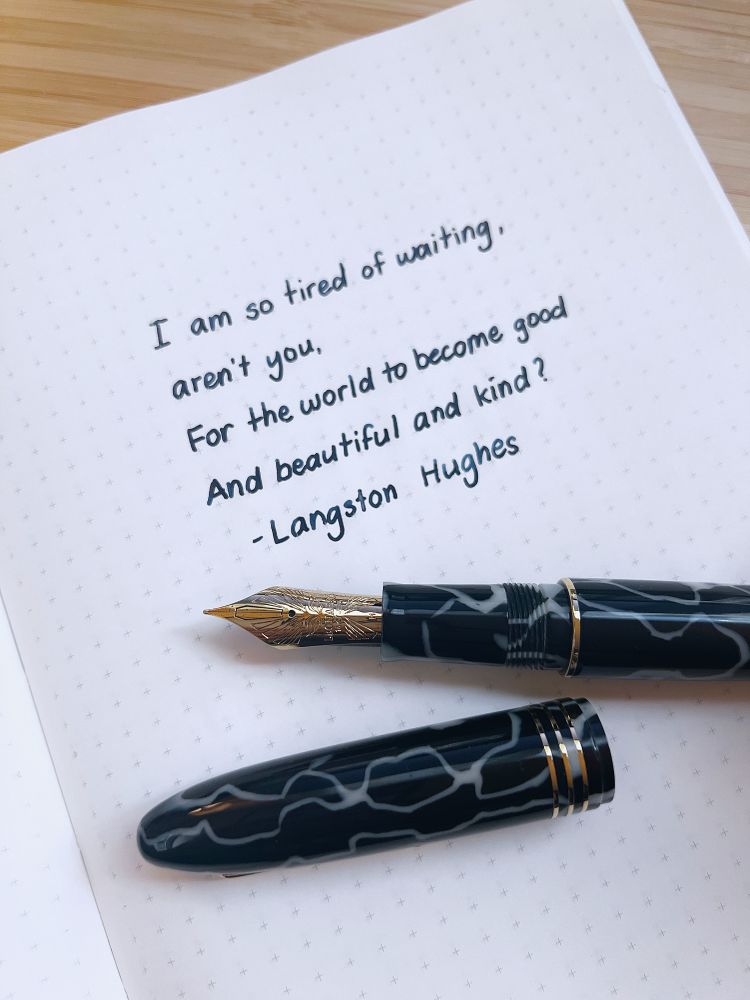 I am so tired of waiting,
aren't you,
For the world to become good
And beautiful and kind?
-Langston Hughes